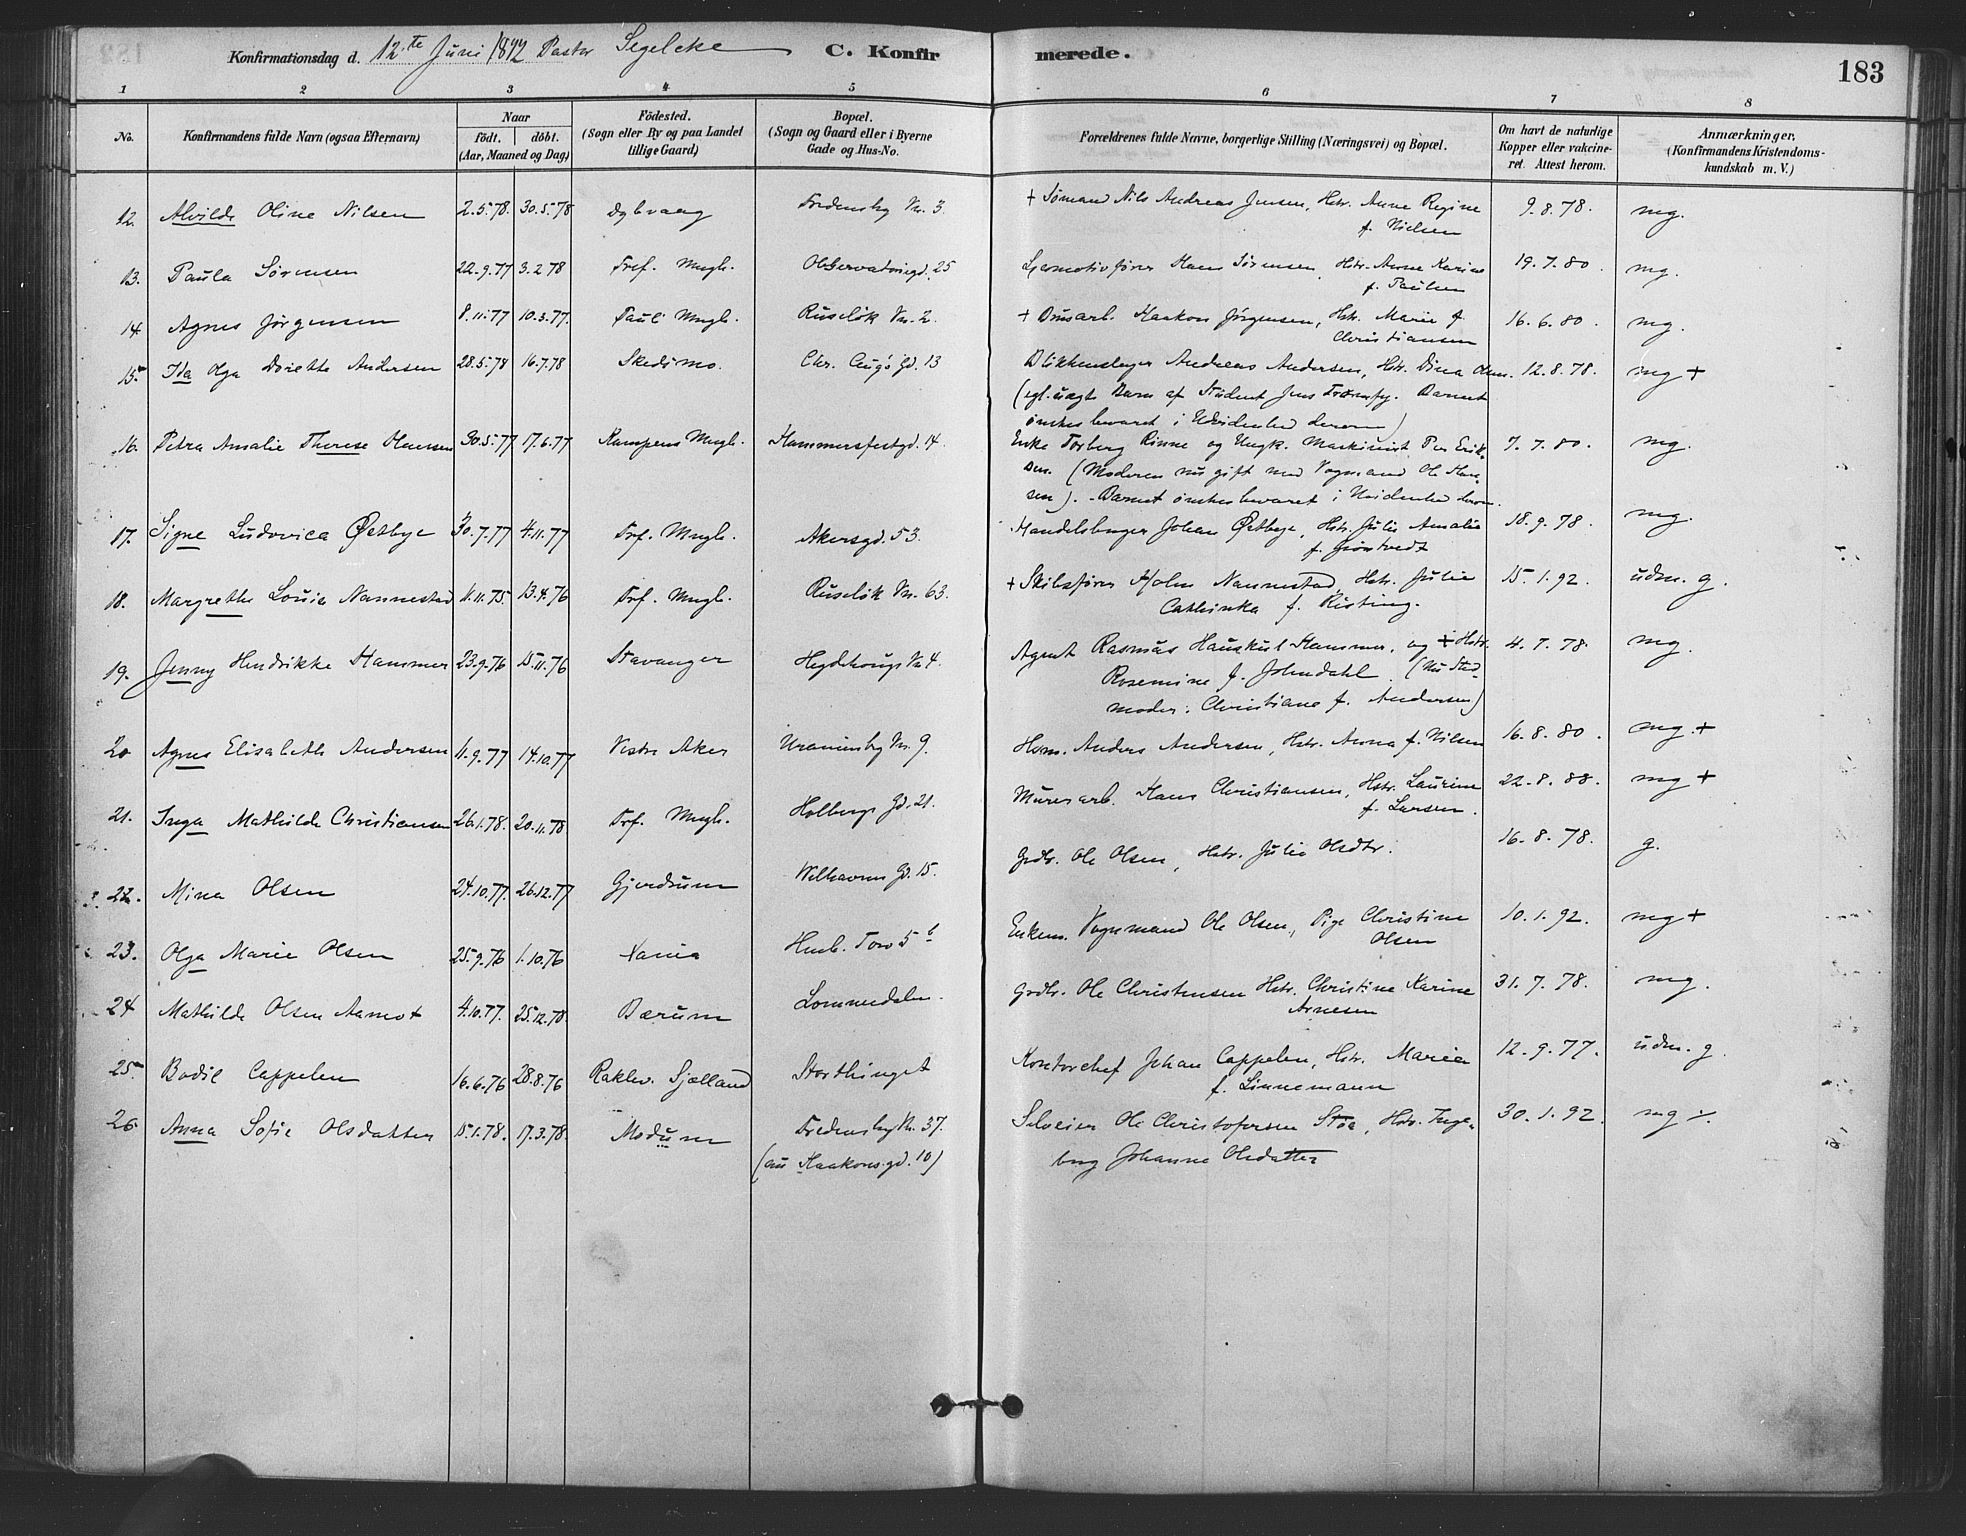 Konfirmationsdag d. 12te Juni 1892 Pastor Segelcke C. Konfirmerede. 183
1 2 3 4 5 6 7 8
No. Konfirmandens fulde Navn (ogsaa Efternavn) Naar født. døbt. (Aar, Maaned og Dag) Födested. (Sogn eller By og paa Landet tillige Gaard) Bopæl. (Sogn og Gaard eller i Byerne Gade og Hus-No. Forældrenes fulde Navne, borgerlige Stilling (Næringsvei) og Bopæl. Om havt de naturlige Kopper eller vakcineret. Attest herom. Anmærkninger. (Konfirmandens Kristendomskundskab m. V.)
12. Alvilde Oline Nilsen 2.5.78. 30.5.78 Dybvaag Fredensby Vn. 3. + Sömand Nils Andreas Jensen, Hstr. Anne Regine 9.8.78. mg.
f. Nielsen
13. Paula Sørensen 22.9.77 3.2.78 Tref. Mngh. Observatoriegd. 25 Locomotivfører Hans Sørensen, Hstr. Anne Karine 19.7.80. mg.
f. Paulsen
14. Agnes Jørgensen 8.11.77 10.3.77. Paul Mngh. Ruseløk Vn. 2. + Brusarb. Haakon Jørgensen, Hstr. Marie f. 16.6.80. mg.
Christiansen
15. Ida Olga Dorette Andersen 28.5.78 16.7.78 Skedsmo. Chr. Augs Gd. 13 Blikkenslager Andreas Andersen, Hstr. Dina Olsen. 12.8.78. mg +
(egl. uægte Barn af Student Jens Barnet
ønskes bevaret i Uvidenhed derom)
16. Petra Amalie Therese Olausen 30.5.77 17.6.77 Kampens Mngh. Hammersfestgd. 14. Enke Torberg Rinne og Ungk. Maskinist Per Erik- 7.7.80. mg.
sen. (Moderen nu gift med Vognmand Ole Han-
sen). Barnet ønskes bevaret i Uvidenhed derom.
17. Signe Ludovica Østbye 30.7.77 4.11.77 Trf. Mngh. Akersgd. 53. Handelsborger Johan Østbye, Hstr. Julie Amalie 18.9.78. mg.
f. Grøntvedt
18. Margrethe Louise Nannestad 11.11.75. 13.4.76 Trf. Mngh. Ruseløk Vn. 63. + Skibsfører Holm Nannestad, Hstr. Julie 15.1.92. udm. g.
Cathinka f. Risting.
19. Jenny Hendrikke Hammer 23.9.76 15.11.76 Stavanger Hegdehougs Vn 4. Agent Rasmus Hauskul Hammer, og + Hstr. 4.7.78. mg.
Rosemine f. Johndahl. (Nu Sted-
moder: Christiane f. Andersen)
20 Agnes Elisabeth Andersen 11.9.77 14.10.77 Vestre Aker Uranienby Vn. 9. Hsm. Anders Andersen, Hstr. Anna f. Nilsen 16.8.80. mg. +
21. Inga Mathilde Christiansen 26.1.78. 20.11.78 Trf. Mngh. Holbergs Gd. 21. Murerarb. Hans Christiansen, Hstr. Laurine 22.8.88. mg +
f. Larsen.
22. Mina Olsen 24.10.77 26.12.77 Gjerdrum Welhavens Gd. 15. Grdbr. Ole Olsen, Hstr. Julie Olsdtr. 16.8.78. g.
23. Olga Marie Olsen 25.9.76 1.10.76 Xania Humb. Torv 5 b Enkem. Vognmand Ole Olsen, Pige Christine 10.1.92. mg +
Olsen
24 Mathilde Olsen Aamot 4.10.77. 25.12.78. Bærum Lommedalen. Grdbr. Ole Christensen Hstr. Christine Karine 31.7.78. mg.
Arnesen
25. Bodil Cappelen 16.6.76 28.8.76 Raklev. Sjælland Storthinget Kontorchef Johan Cappelen, Hstr. Marie 12.9.77. udm. g.
f. Linnemann
26. Anna Sofie Olsdatter 15.1.78. 17.3.78. Modum Fredensby Vn. 37. Selveier Ole Christofersen Støa, Hstr. Inge- 30.1.92. mg ÷
(nu Haakonsgd. 10) borg Johanne Olsdatter